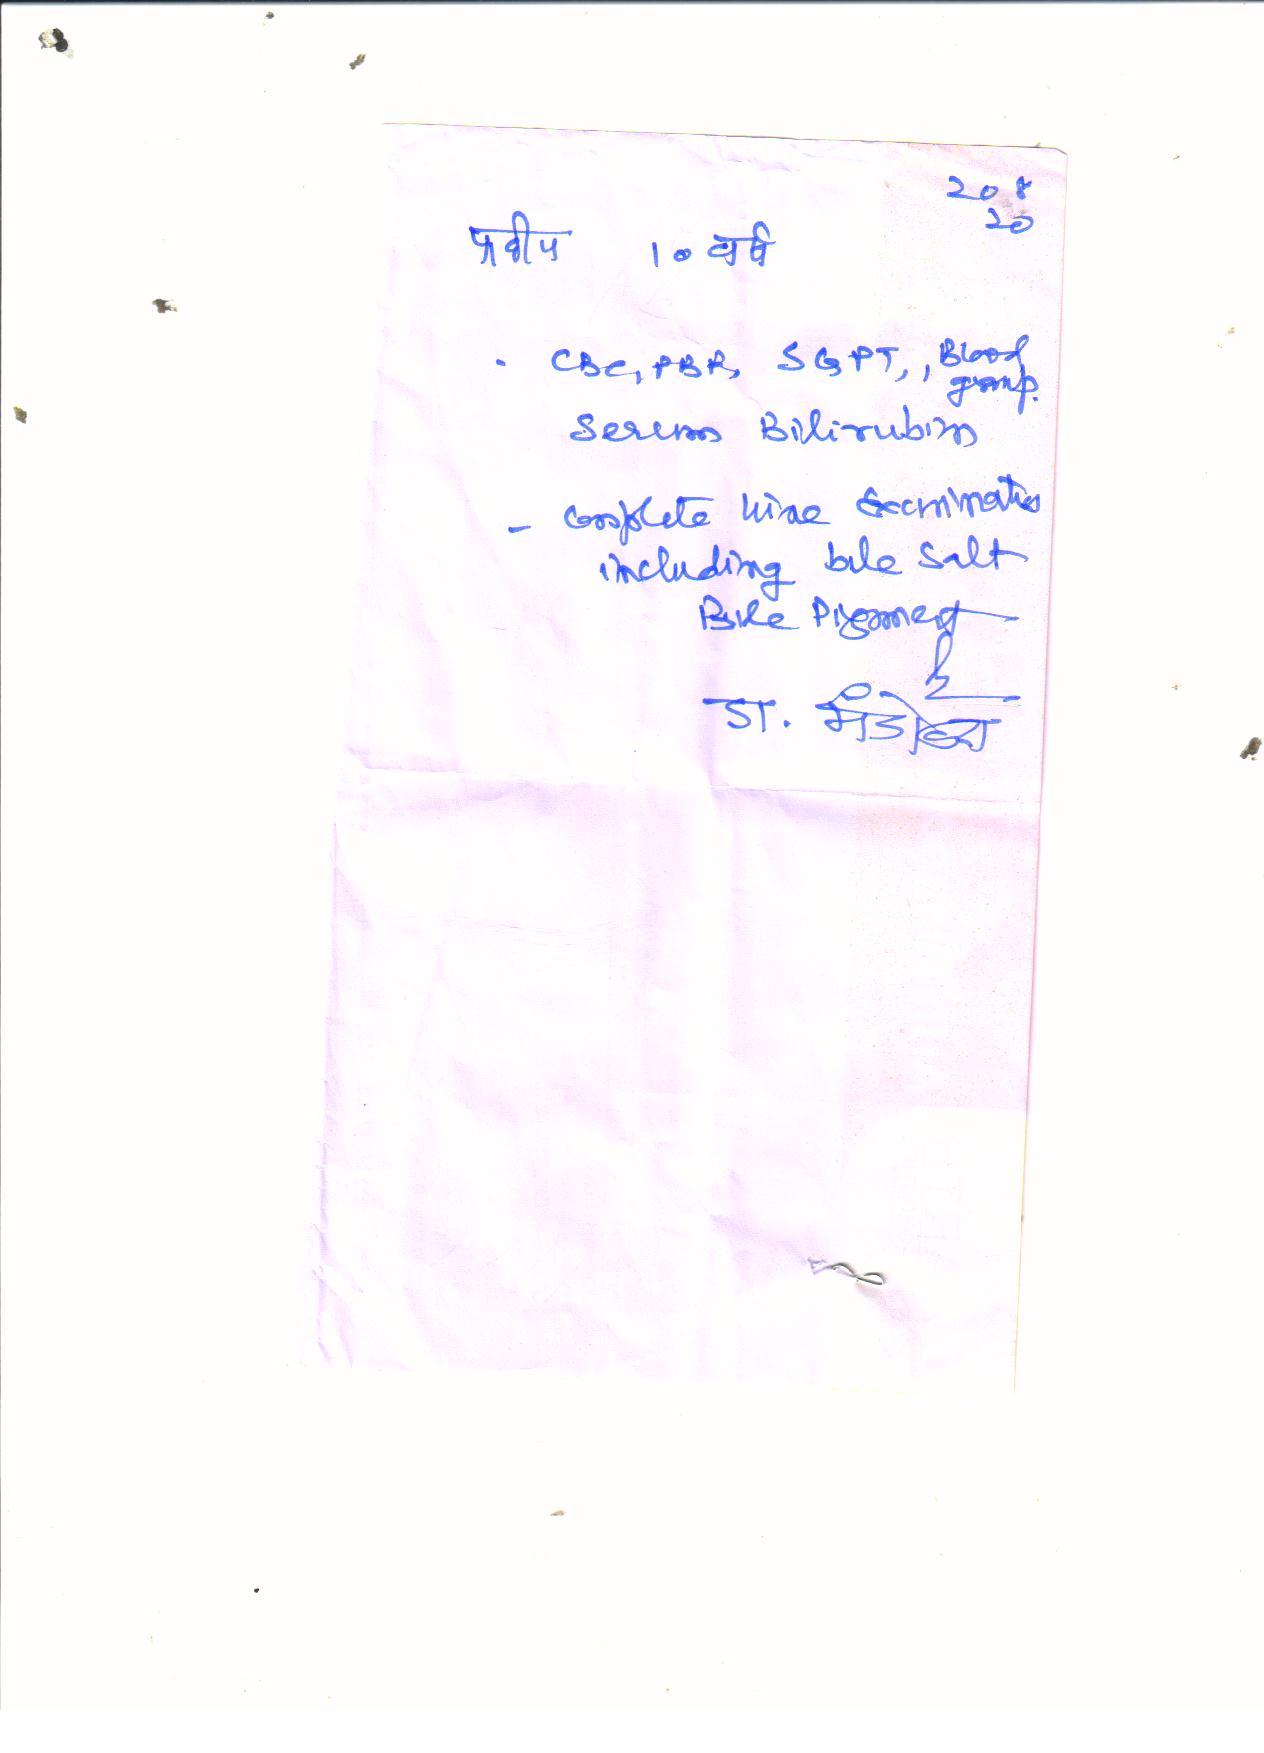 20 8
20
प्रवीप 10 वर्ष
- CBC, PBR, SGPT, , Blood
group.
Serum Bilirubin
- Complete Urine Examination
including bile salt
Bile Pigment
डा.